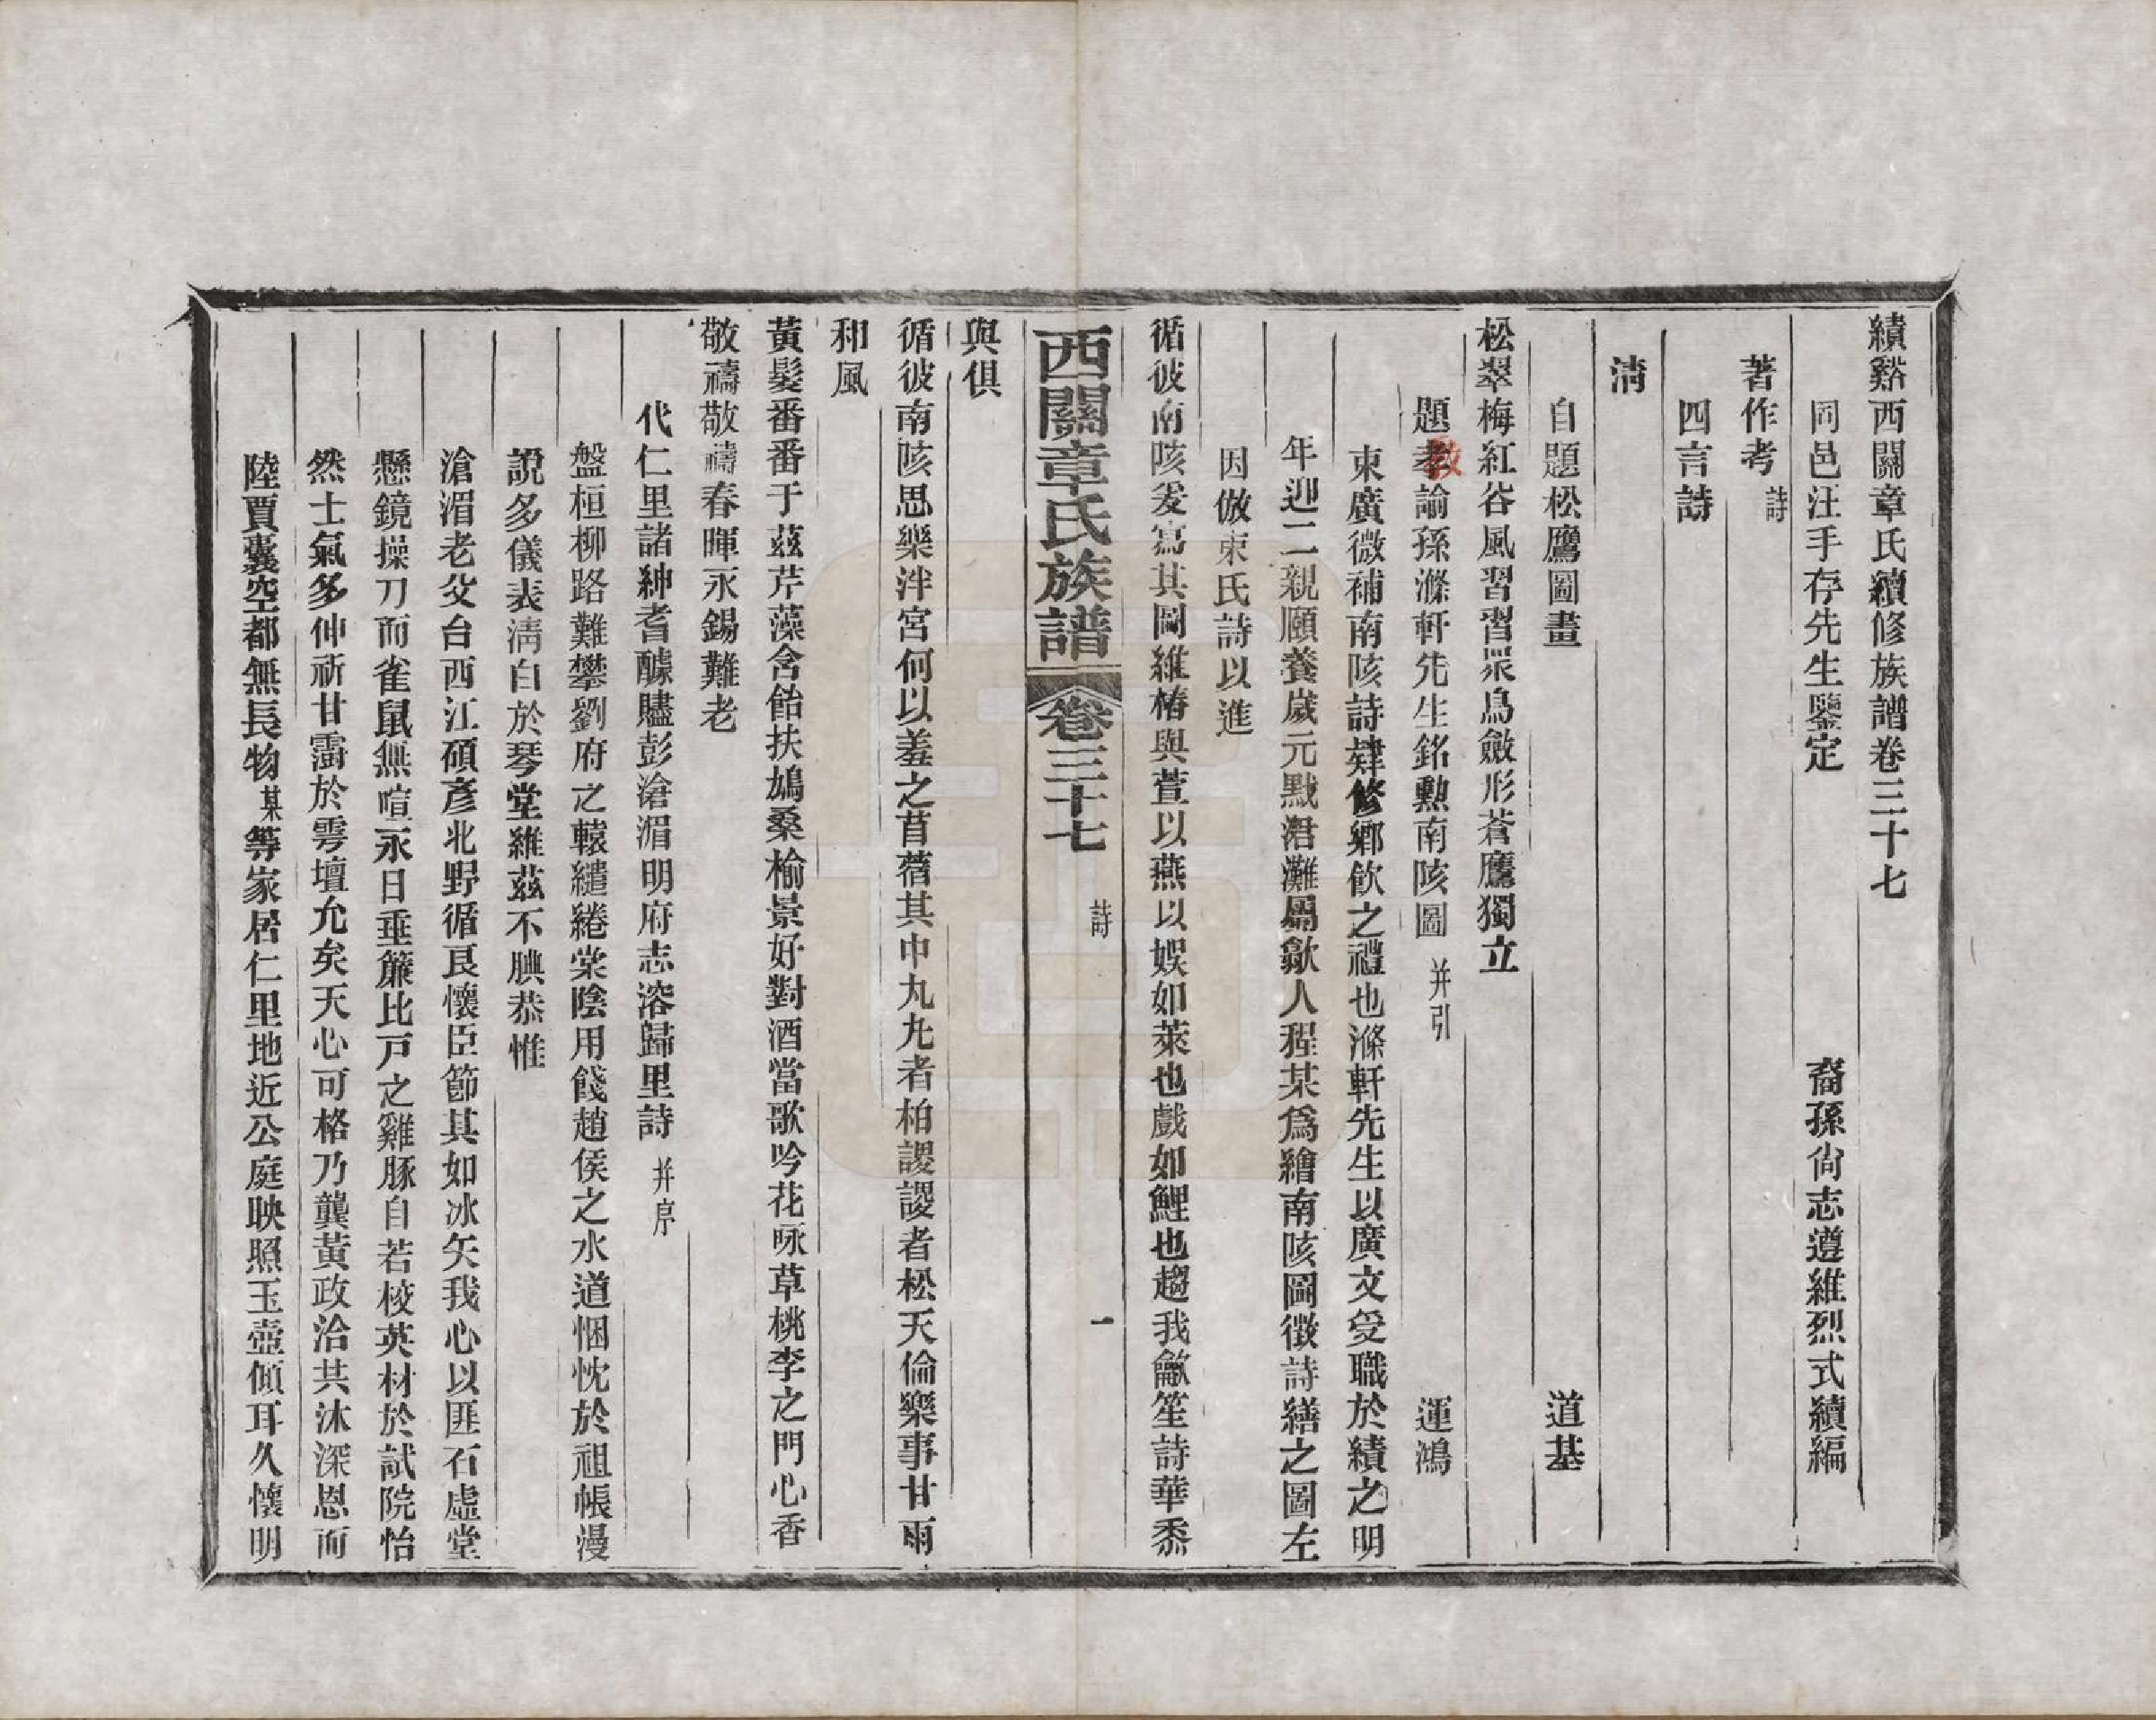 績谿西關章氏續修族譜卷三十七
同邑汪手存先生鑒定　裔孫尙志遵維烈式續編
著作考 詩
四言詩
淸
自題松鷹圖畫　道基
松翠梅紅谷風習習衆鳥斂形蒼鷹獨立
題教諭孫滌軒先生銘勲南陔圖 并引　運鴻
束廣微補南陔詩肄修鄉飮之禮也滌軒先生以廣文受職於績之明
年迎二親頤養歲元黓涒灘屬歙人程某爲繪南陔圖徵詩繕之圖左
因倣束氏詩以進
循彼南陔爰寫其圖維椿與萱以燕以娛如萊也戲如鯉也趨我龡笙詩華黍
西關章氏族譜 卷三十七 詩 一
與俱
循彼南陔思樂泮宮何以羞之苜蓿其中丸丸者柏謖謖者松天倫樂事甘雨
和風
黃髮番番于茲芹藻含飴扶鳩桑榆景好對酒當歌吟花咏草桃李之門心香
敬禱敬禱春暉永錫難老
代仁里諸紳耆醵贐彭滄湄明府志溶歸里詩 并序
盤桓柳路難攀劉府之轅繾綣棠陰用餞趙侯之水道悃忱於祖帳漫
說多儀表淸白於琴堂維茲不腆恭惟
滄湄老父台西江碩彥北野循良懷臣節其如冰矢我心以匪石虛堂
懸鏡操刀而雀鼠無喧永日垂簾比戸之雞豚自若校英材於試院怡
然士氣多伸祈甘澍於雩壇允矣天心可格乃龔黃政洽共沐深恩而
陸賈囊空都無長物某等家居仁里地近公庭映照玉壺傾耳久懷明